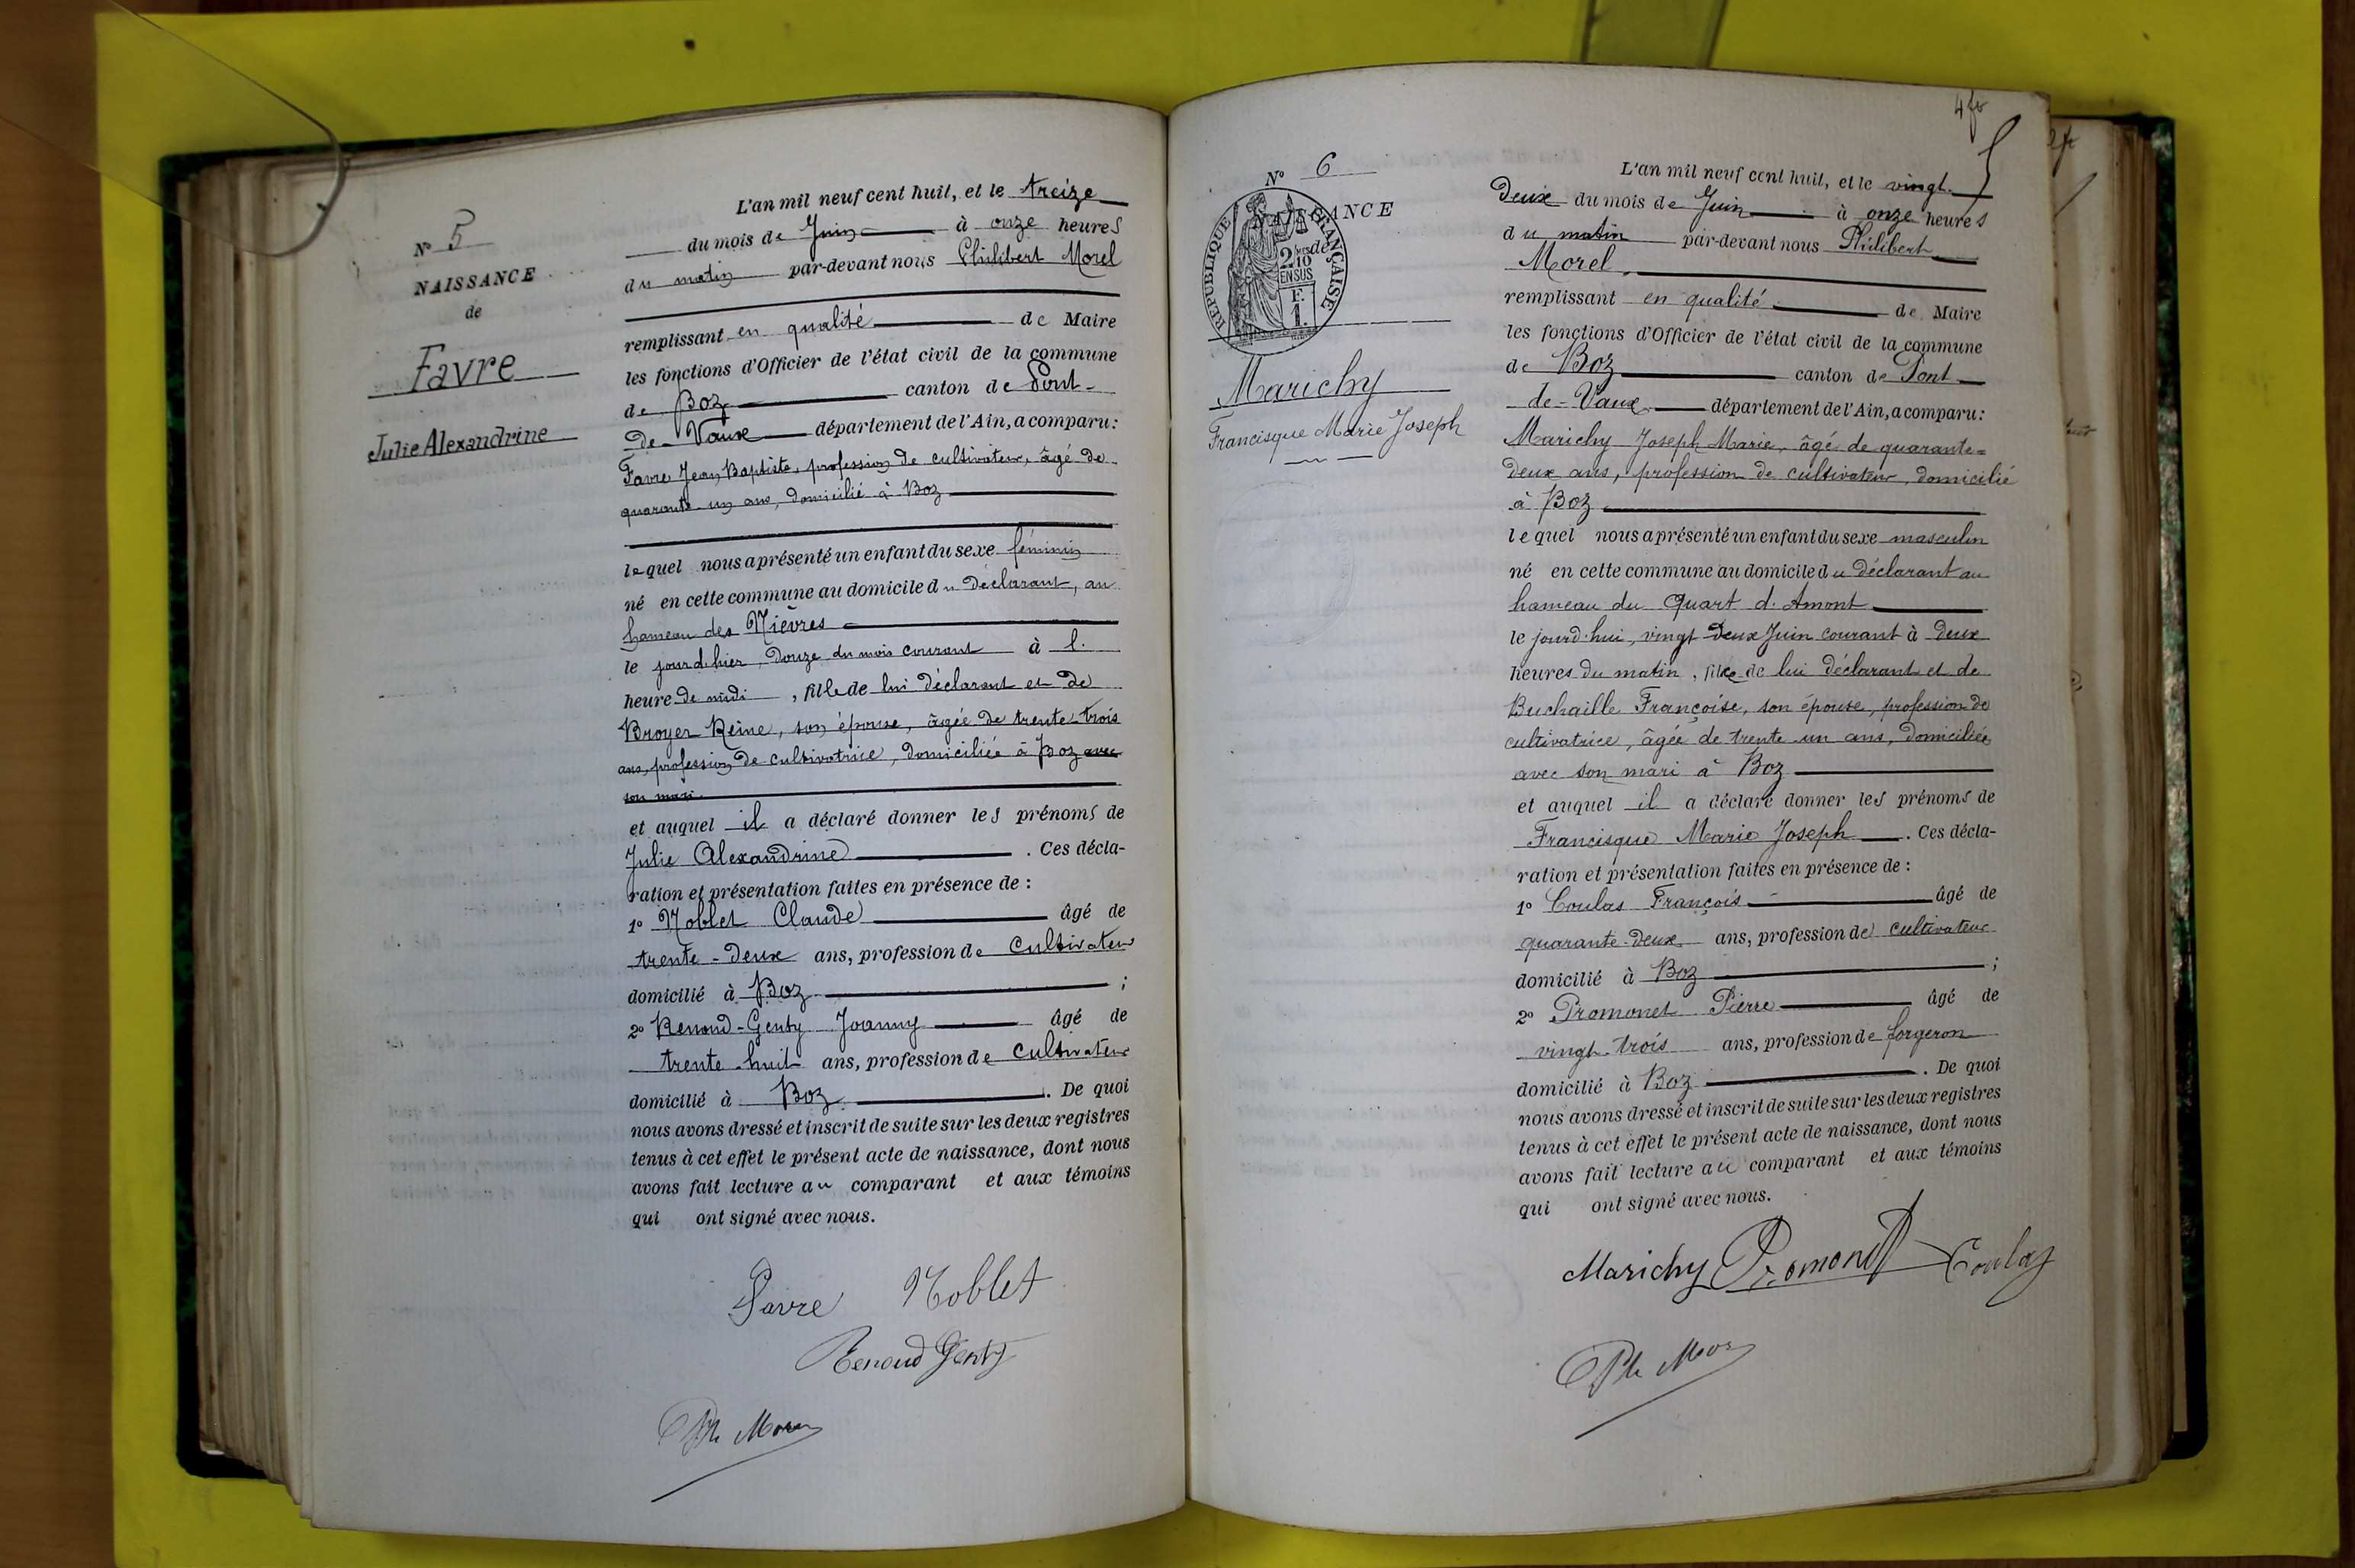 N° 5
NAISSANCE
de
Favre
Julie Alexandrine
L'an mil neuf cent huit, et le treize
du mois de Juin à onze heures
du matin par-devant nous Philibert Morel
remplissant en qualité de Maire
les fonctions d'Officier de l'état civil de la commune
de Boz canton de Pont-
de-Vaux département de l'Ain, a comparu:
Favre Jean Baptiste, profession de cultivateur, âgé de
quarante-un ans, domicilié à Boz
lequel nous a présenté un enfant du sexe féminin
né en cette commune au domicile du déclarant, au
hameau des Nièvres
le jour d'hier, douze du mois courant à l'
heure de midi, fille de lui déclarant et de
Broyer Reine, son épouse, âgée de trente-trois
ans, profession de cultivatrice, domiciliée à Boz avec
son mari
et auquel il a déclaré donner les prénoms de
Julie Alexandrine. Ces décla-
ration et présentation faites en présence de :
1° Noblet Claude âgé de
trente-deux ans, profession de cultivateur
domicilié à Boz ;
2° Renoud-Genty Joanny âgé de
trente-huit ans, profession de cultivateur
domicilié à Boz. De quoi
nous avons dressé et inscrit de suite sur les deux registres
tenus à cet effet le présent acte de naissance, dont nous
avons fait lecture au comparant et aux témoins
qui ont signé avec nous.
Favre Noblet
Renoud Genty
Ph Morel
4 fo
N° 6
NAISSANCE
de
RÉPUBLIQUE FRANÇAISE
2/10
EN SUS
F.
1.
Marichy
Francisque Marie Joseph
L'an mil neuf cent huit, et le vingt-
deux du mois de Juin à onze heures
du matin par-devant nous Philibert
Morel,
remplissant en qualité de Maire
les fonctions d'Officier de l'état civil de la commune
de Boz canton de Pont-
de-Vaux département de l'Ain, a comparu:
Marichy Joseph Marie, âgé de quarante-
deux ans, profession de cultivateur, domicilié
à Boz
lequel nous a présenté un enfant du sexe masculin
né en cette commune au domicile du déclarant au
hameau du Quart d'Amont
le jourd'hui, vingt deux Juin courant à deux
heures du matin, fils de lui déclarant et de
Buchaille Françoise, son épouse, profession de
cultivatrice, âgée de trente un ans, domiciliée
avec son mari à Boz
et auquel il a déclaré donner les prénoms de
Francisque Marie Joseph. Ces décla-
ration et présentation faites en présence de :
1° Coulas François âgé de
quarante-deux ans, profession de cultivateur
domicilié à Boz ;
2° Promonet Pierre âgé de
vingt-trois ans, profession de forgeron
domicilié à Boz. De quoi
nous avons dressé et inscrit de suite sur les deux registres
tenus à cet effet le présent acte de naissance, dont nous
avons fait lecture au comparant et aux témoins
qui ont signé avec nous.
Marichy Promonet Coulas
Ph Mor